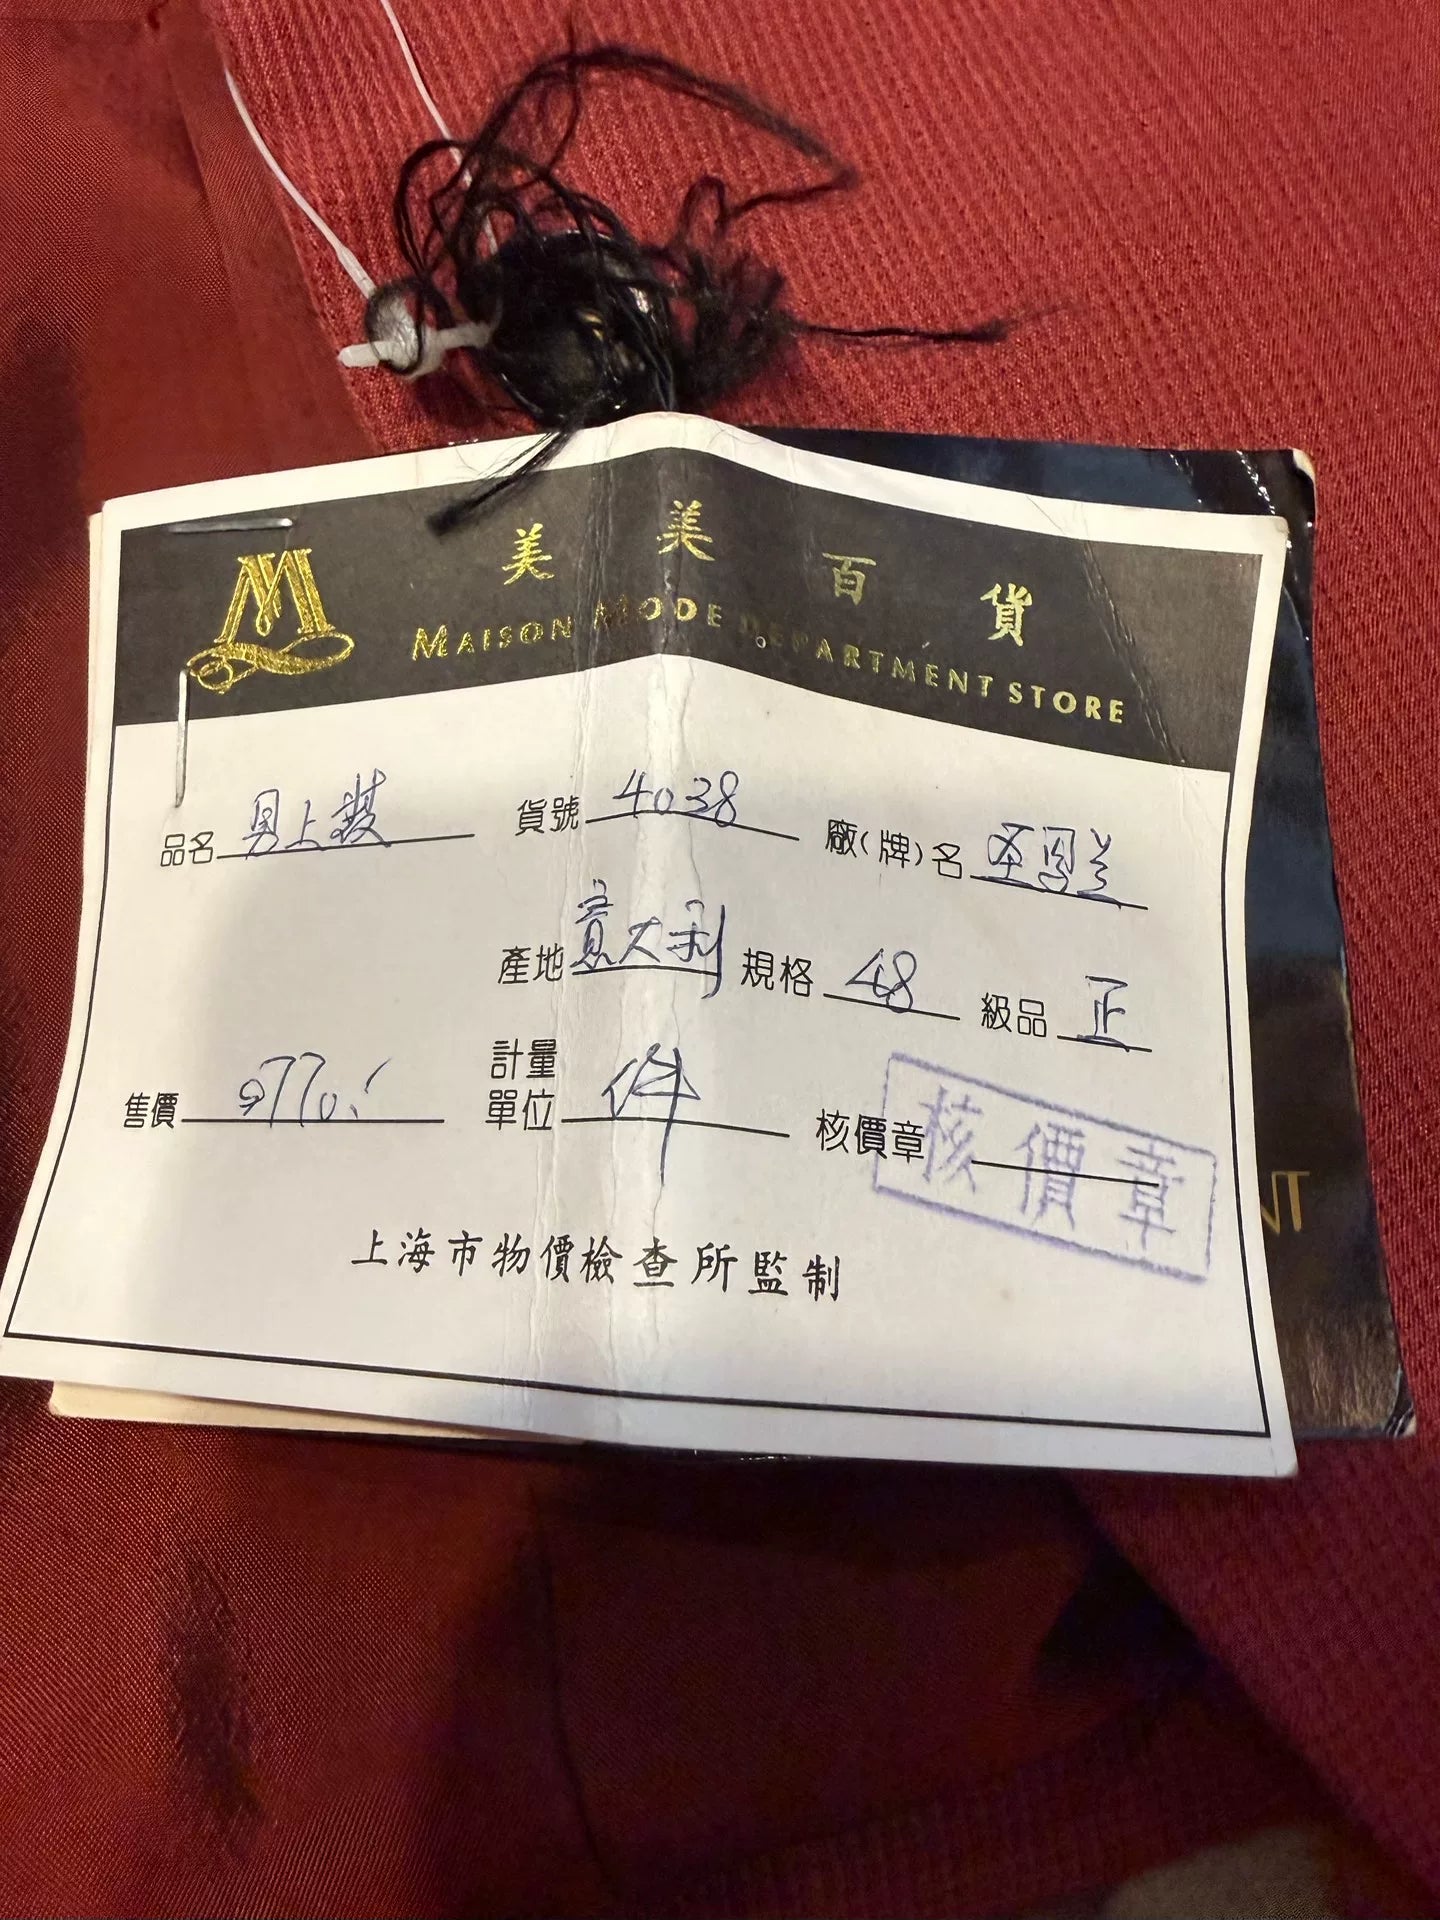 美美百貨
MAISON MODE DEPARTMENT STORE
品名 男上裝 貨號 4038 廠(牌)名 圣
產地 意大利 規格 48 級品 正
售價 計量單位 件 核價章 核價章
上海市物價檢查所監制